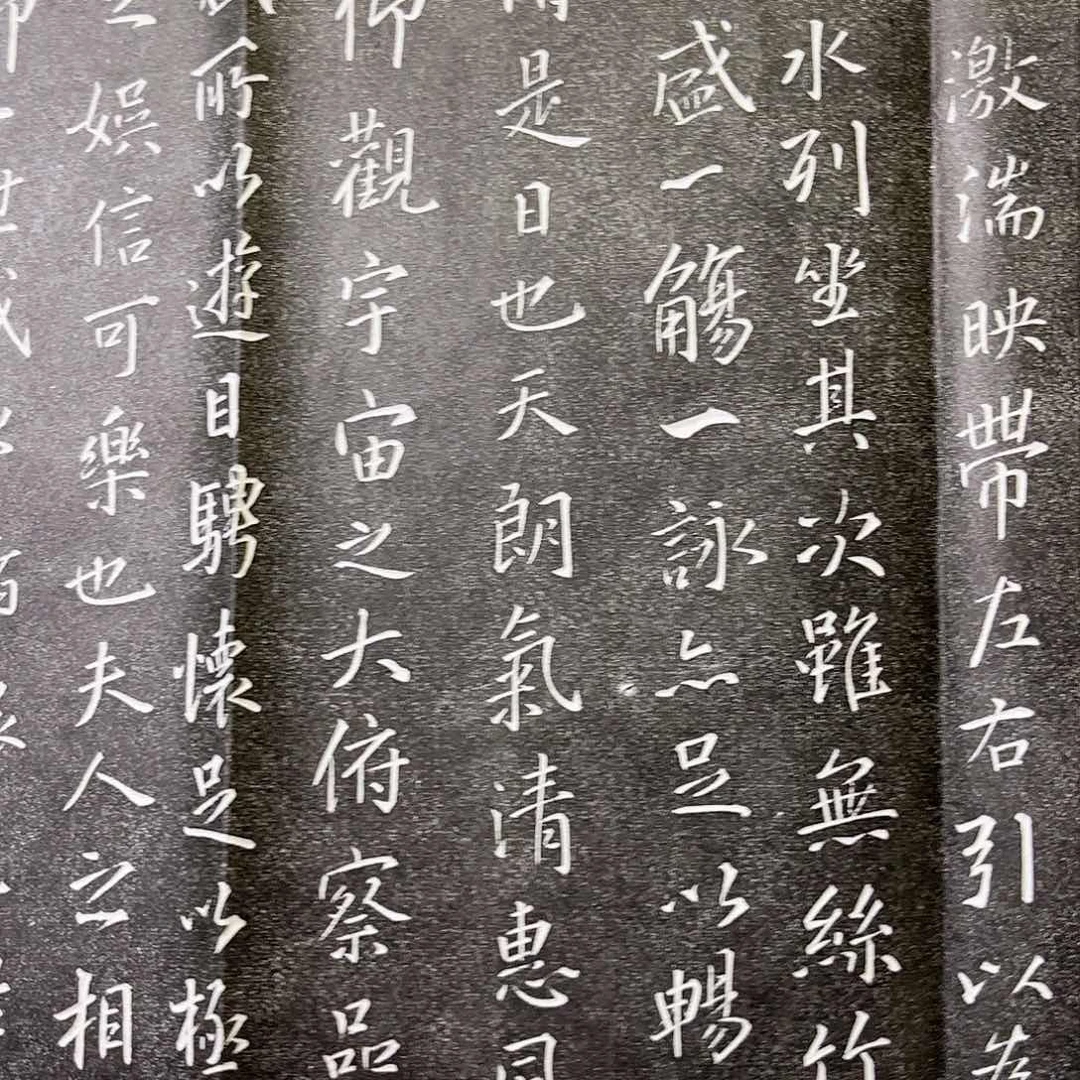 激湍映帶左右引以為
水列坐其次雖無絲竹
盛一觴一詠亦足以暢
是日也天朗氣清惠
仰觀宇宙之大俯察品
所以遊目騁懷足以極
娛信可樂也夫人之相